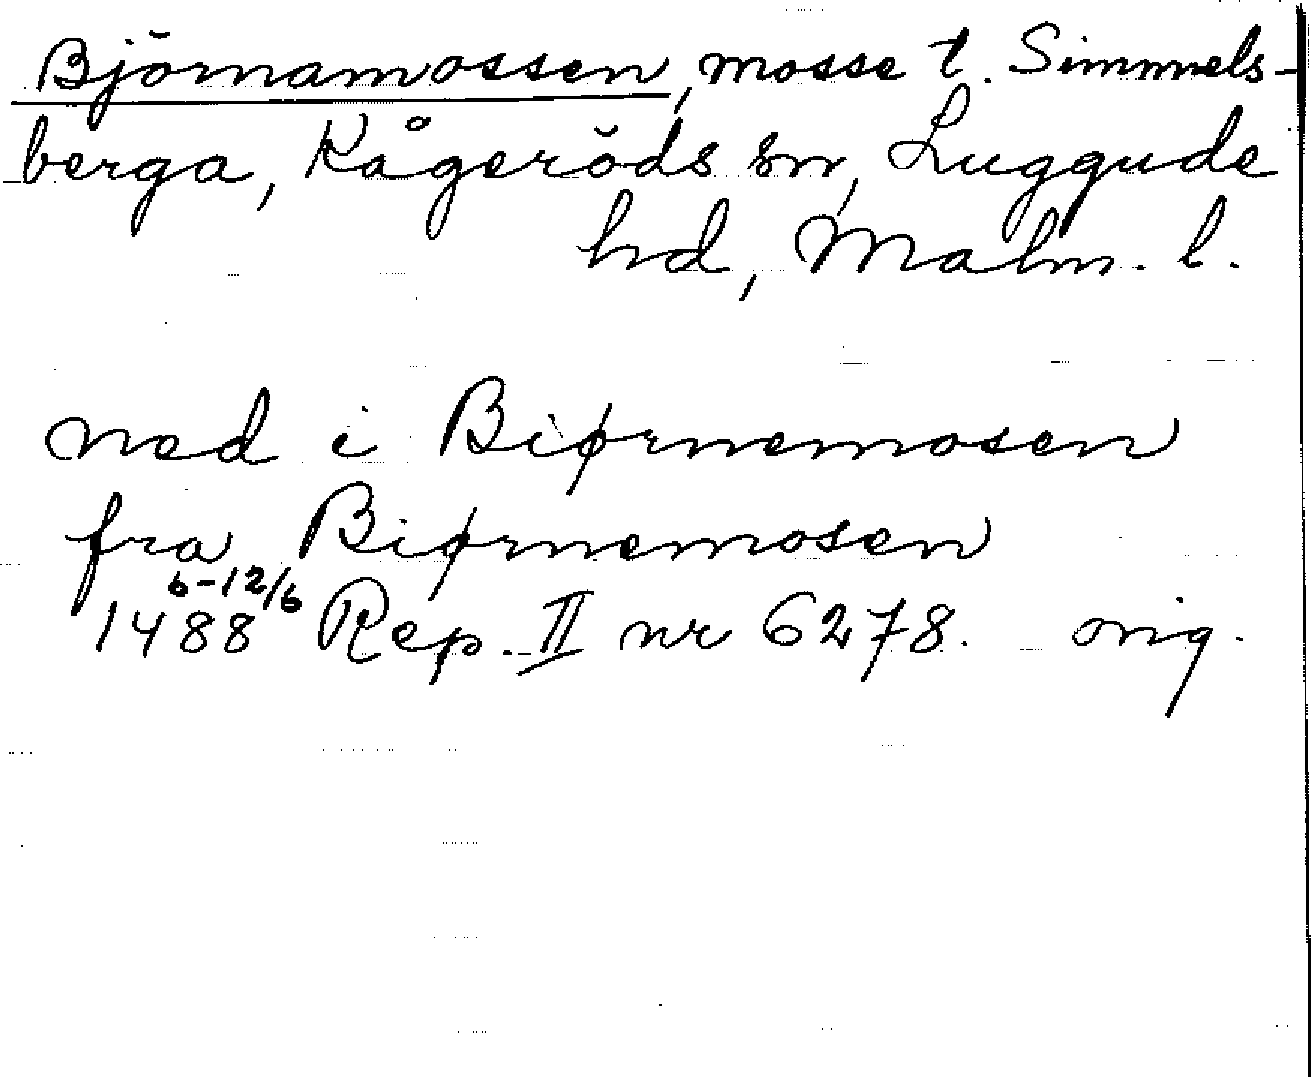 Björnamossen, mosse t. Simmels-
berga, Kågeröds sn, Luggude
hd, Malm. l.
ned i Biørnemosen
fra Biørnemosen
6-12/6
1488 Rep. II nr 6278. orig.